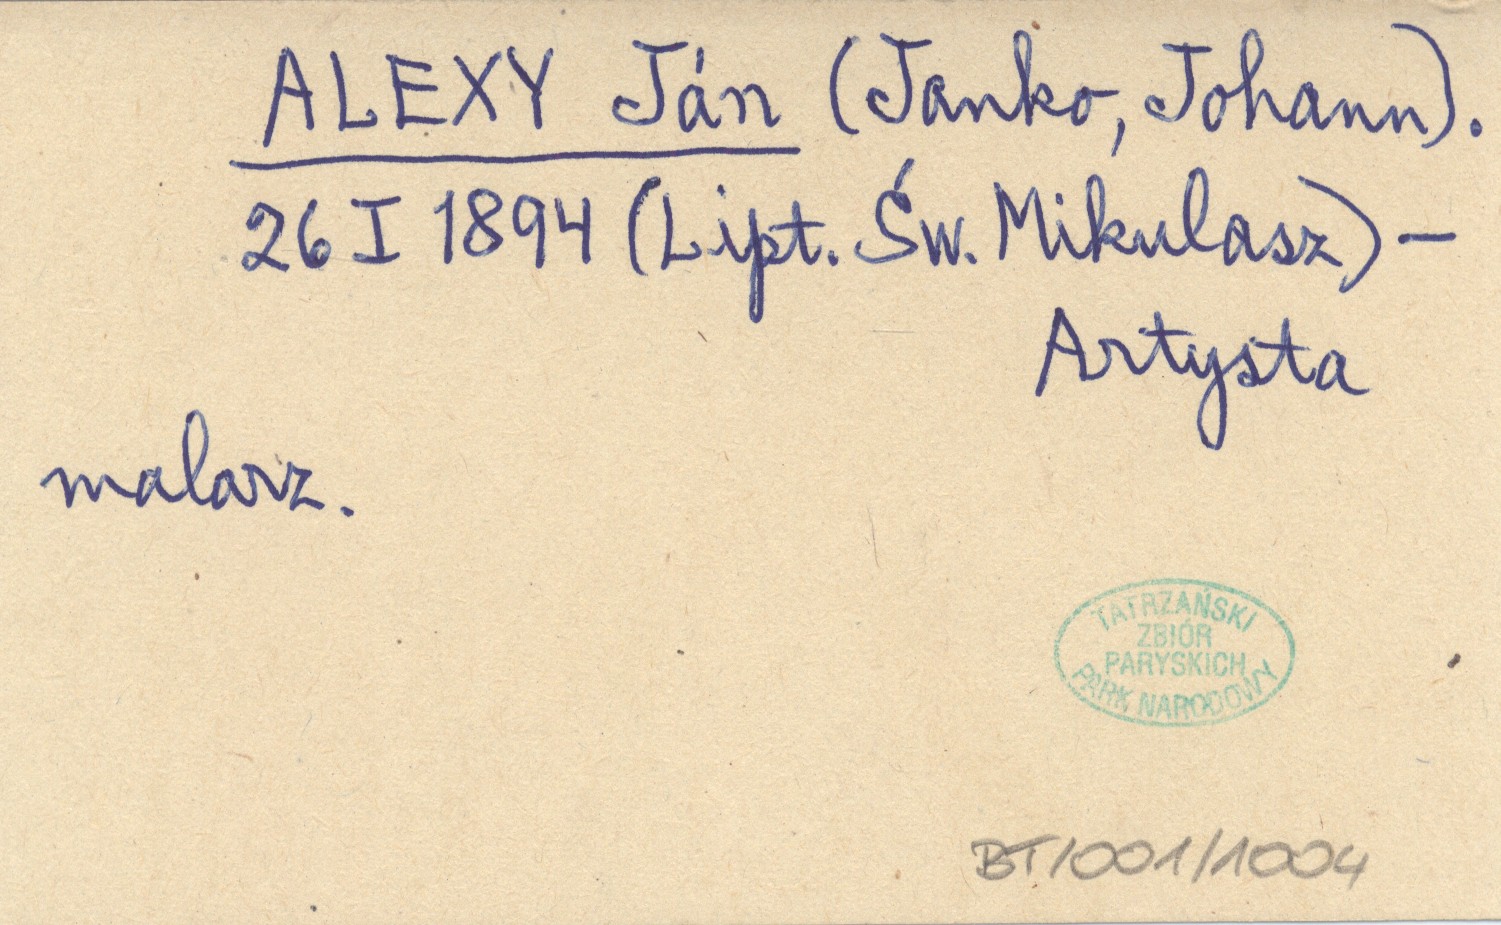 ALEXY Ján (Janko, Johann).
26 I 1894 (Lipt. Św. Mikulasz) –
Artysta
malarz.
TATRZAŃSKI
ZBIÓR
PARYSKICH
PARK NARODOWY
BT/001/1004